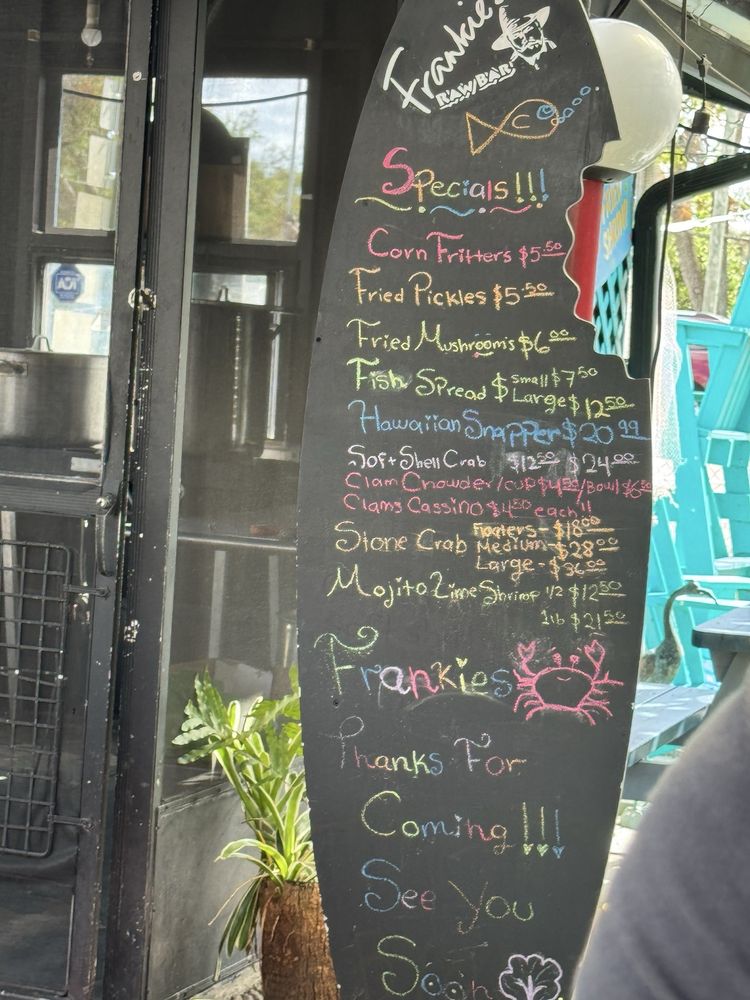 Frankie's
RAW BAR
Specials!!!
Corn Fritters $5.50
Fried Pickles $5.50
Fried Mushrooms $6.00
Fish Spread $ small $7.50
Large $12.50
Hawaiian Snapper $20.99
Soft Shell Crab $12.50 $24.00
Clam Chowder/cup $4.50/Bowl $6.50
Clams Cassino $4.50 each!!
Floaters - $18.00
Stone Crab Medium - $28.00
Large - $36.00
Mojito Lime Shrimp 1/2 $12.50
1lb $21.50
Frankies
Thanks For
Coming!!!
See You
Soon
ADT